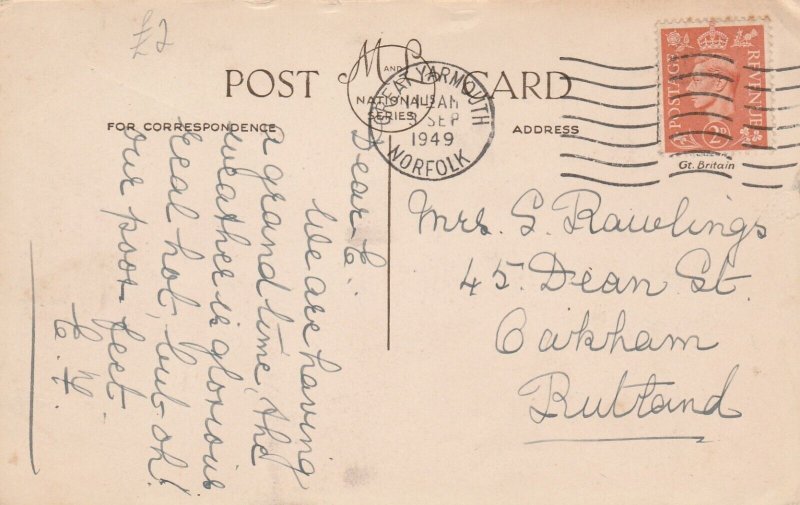 £2
POST CARD
M AND L
NATIONAL
SERIES
FOR CORRESPONDENCE
ADDRESS
GREAT YARMOUTH
SEP
1949
NORFOLK
POSTAGE
REVENUE
2D
Gt. Britain
Dear E.
We are having
a grand time, the
weather is glorious
real hot, but oh!
our poor feet
E. Y.
Mrs. S. Rawlings
45. Dean St.
Oakham
Rutland